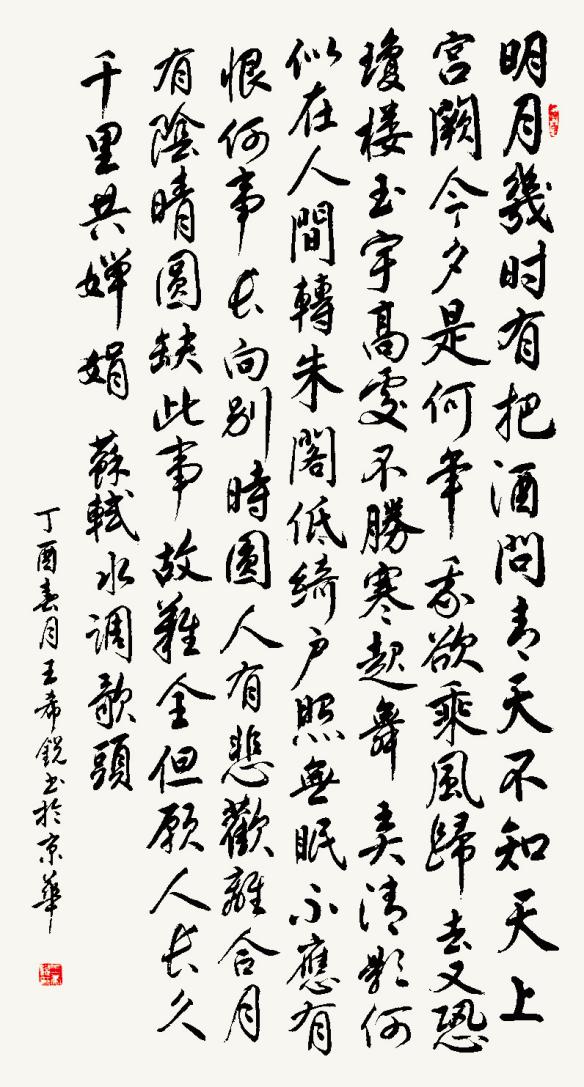 明月幾时有把酒問青天不知天上
宮闕今夕是何年我欲乘風歸去又恐
瓊楼玉宇高處不勝寒起舞弄清影何
似在人間轉朱閣低綺户照無眠不應有
恨何事長向别時圓人有悲歡離合月
有陰晴圓缺此事故難全但願人長久
千里共嬋娟 蘇軾水调歌頭
丁酉春月王希鋭书於京華